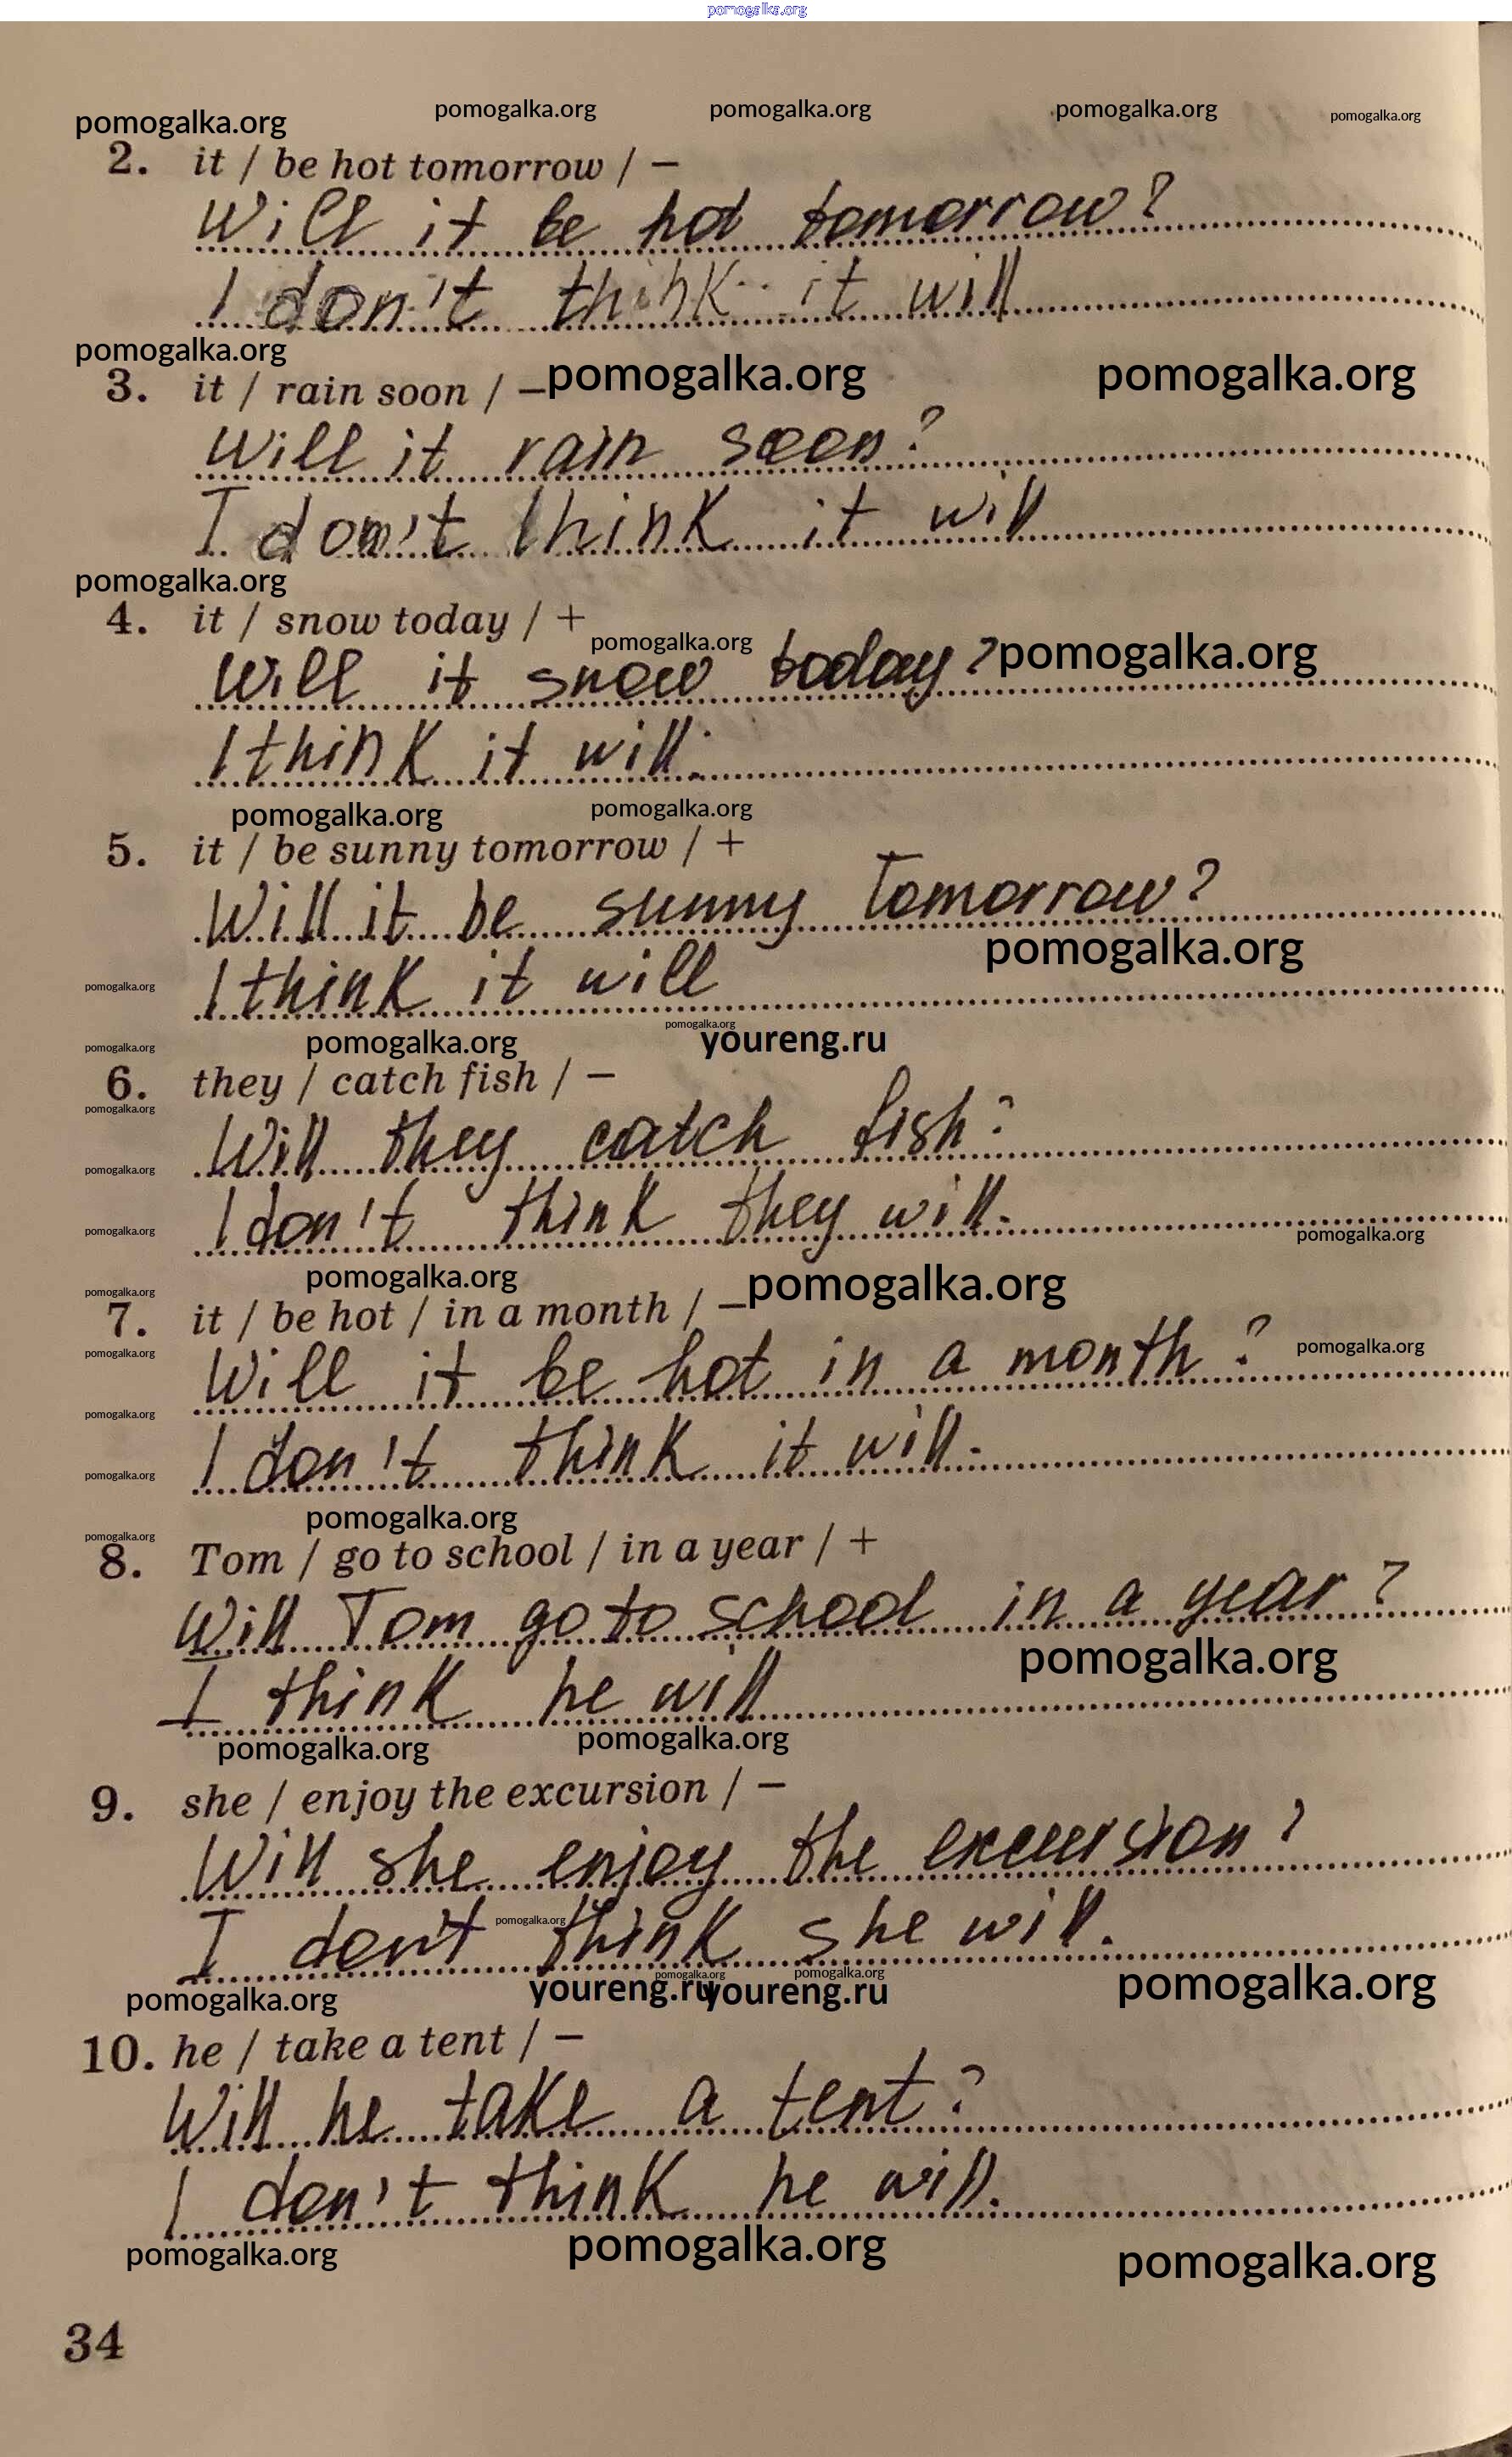 pomogalka.org
pomogalka.org pomogalka.org pomogalka.org pomogalka.org pomogalka.org
2. it / be hot tomorrow / –
Will it be hot tomorrow?
I don't think it will
pomogalka.org
3. it / rain soon / – pomogalka.org pomogalka.org
Will it rain soon?
I don't think it will
pomogalka.org
4. it / snow today / +
pomogalka.org
Will it snow today? pomogalka.org
I think it will.
pomogalka.org pomogalka.org
5. it / be sunny tomorrow / +
Will it be sunny Tomorrow?
pomogalka.org
pomogalka.org I think it will
pomogalka.org
pomogalka.org pomogalka.org youreng.ru
6. they / catch fish / –
pomogalka.org
Will they catch fish?
pomogalka.org
I don't think they will.
pomogalka.org pomogalka.org
pomogalka.org pomogalka.org pomogalka.org
7. it / be hot / in a month / –
pomogalka.org Will it be hot in a month? pomogalka.org
pomogalka.org
I don't think it will.
pomogalka.org
pomogalka.org
pomogalka.org
8. Tom / go to school / in a year / +
Will Tom go to school in a year?
pomogalka.org
I think he will
pomogalka.org pomogalka.org
9. she / enjoy the excursion / –
Will she enjoy the excursion?
pomogalka.org
I don't think she will.
pomogalka.org youreng.ru pomogalka.org youreng.ru pomogalka.org pomogalka.org
10. he / take a tent / –
Will he take a tent?
I don't think he will.
pomogalka.org pomogalka.org pomogalka.org
34